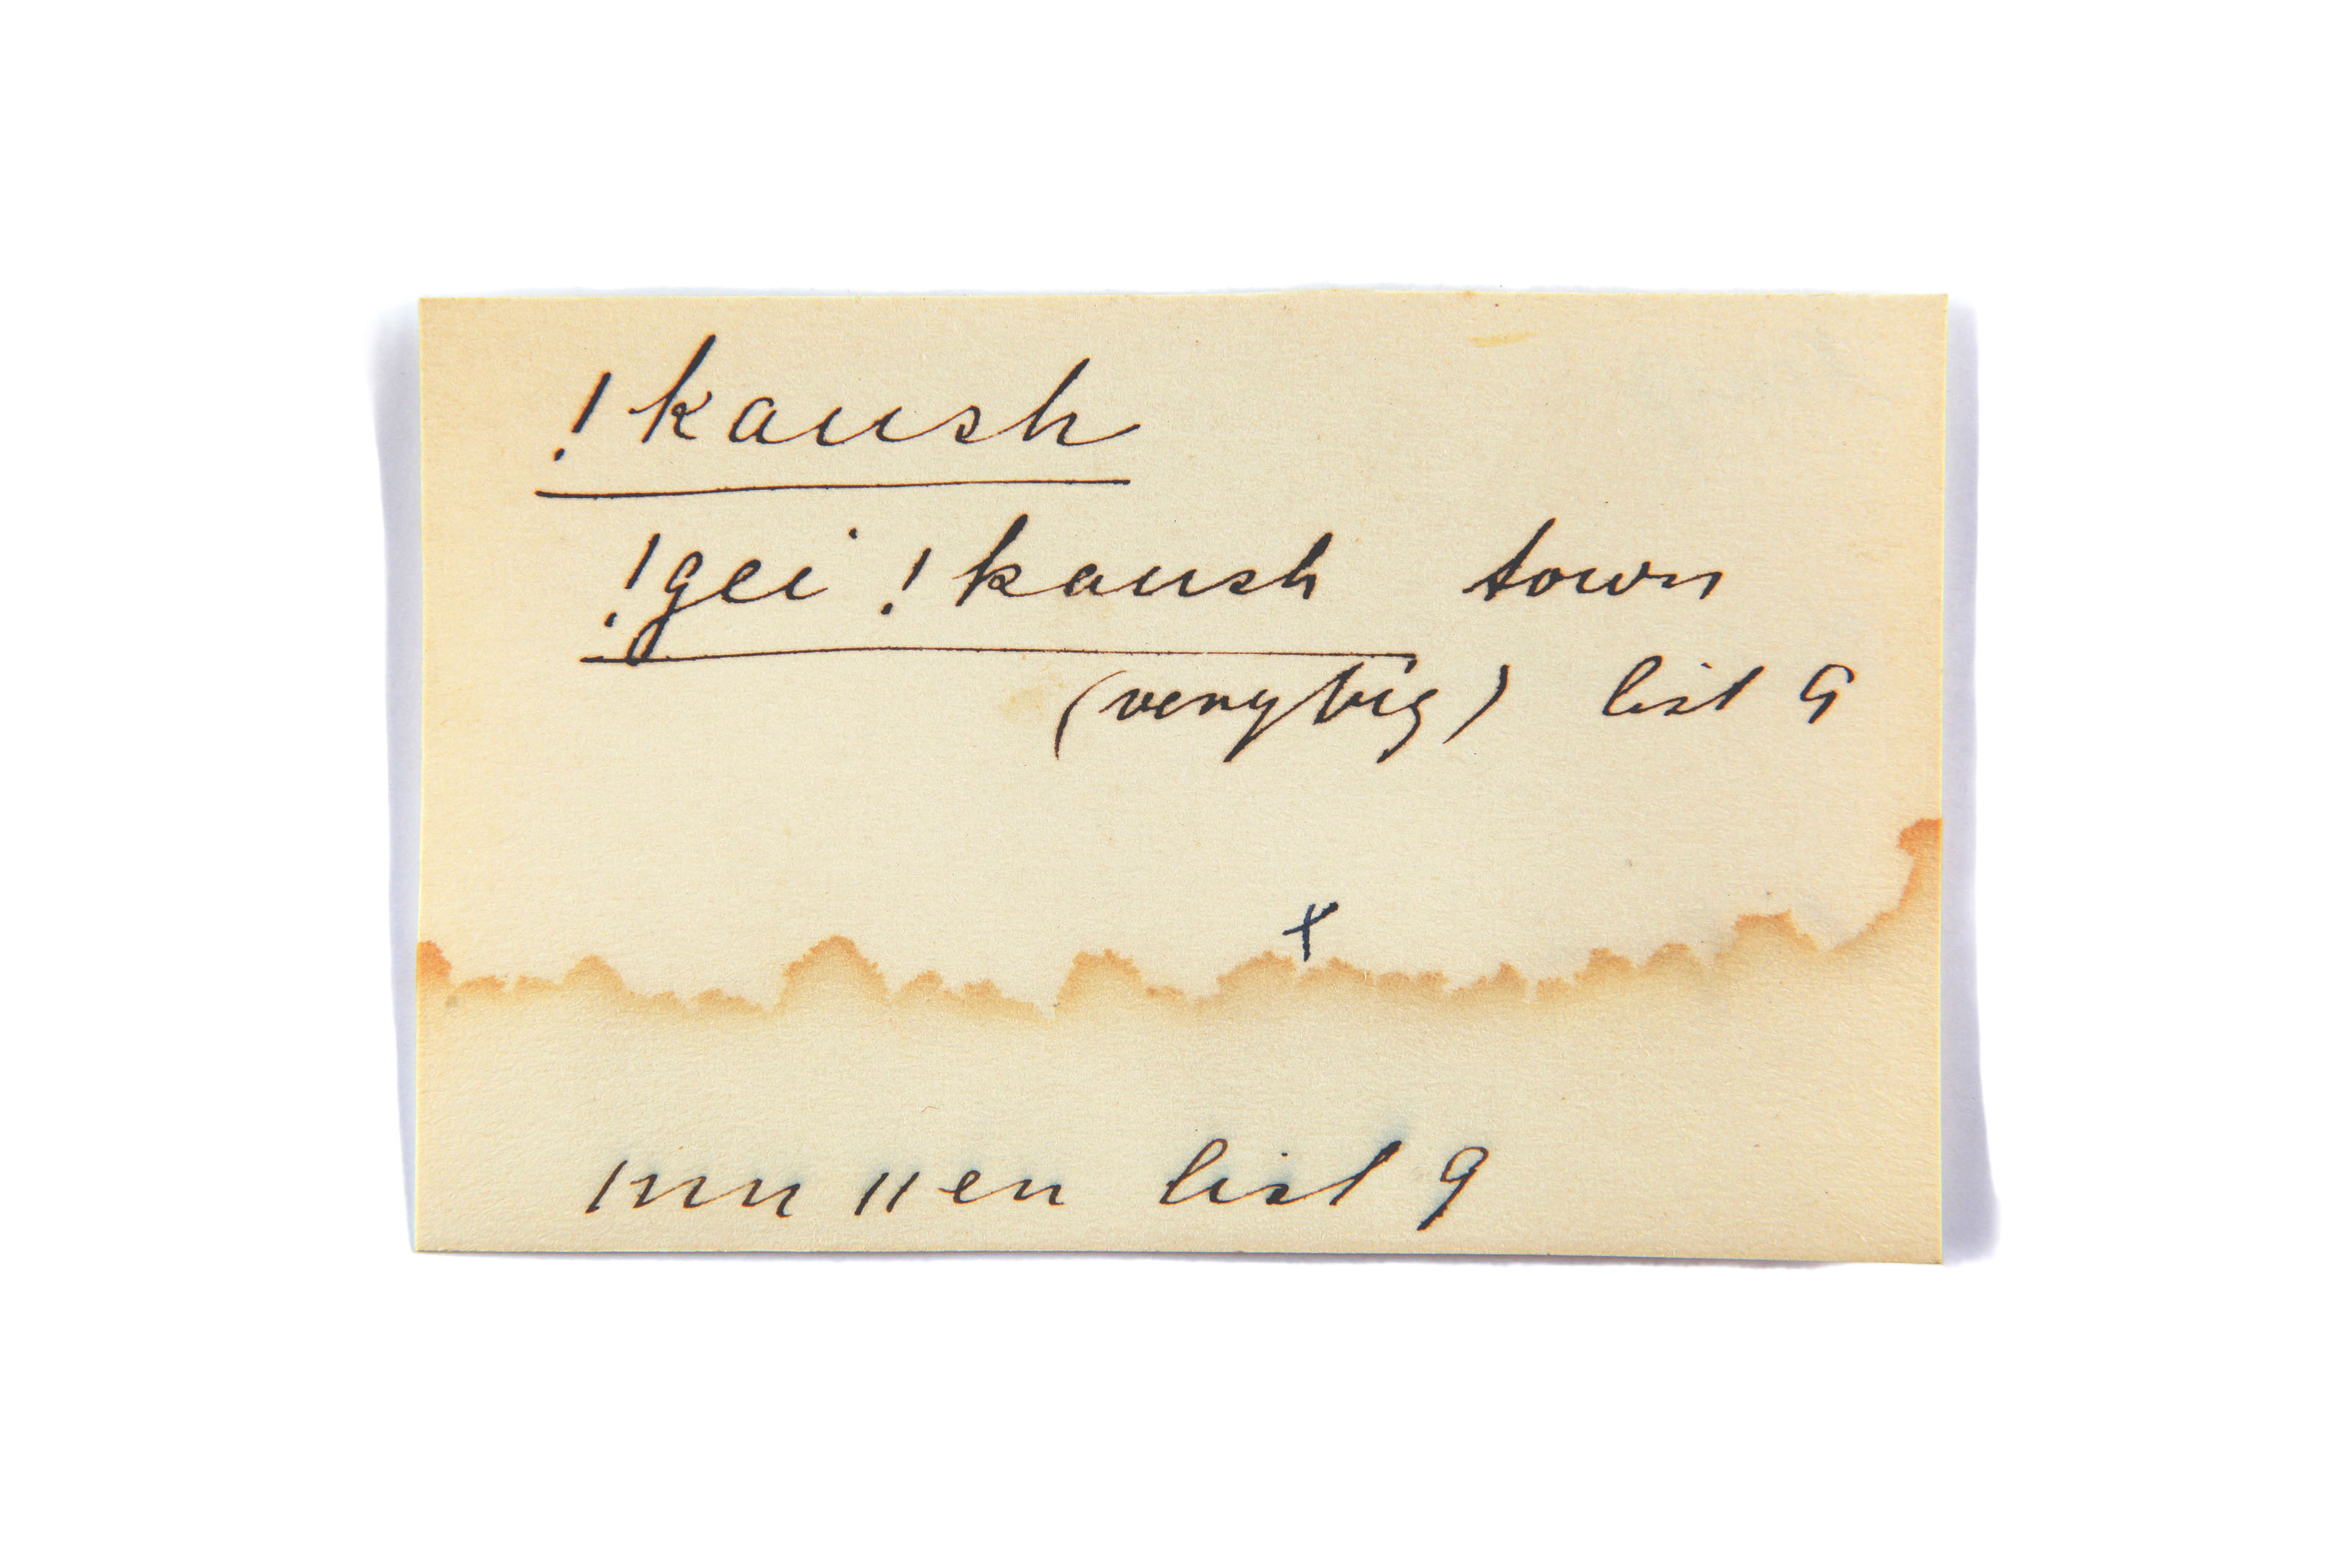 !kaush
!gei !kaush town
(very big) list 9
x
ǀnu ǁen list 9